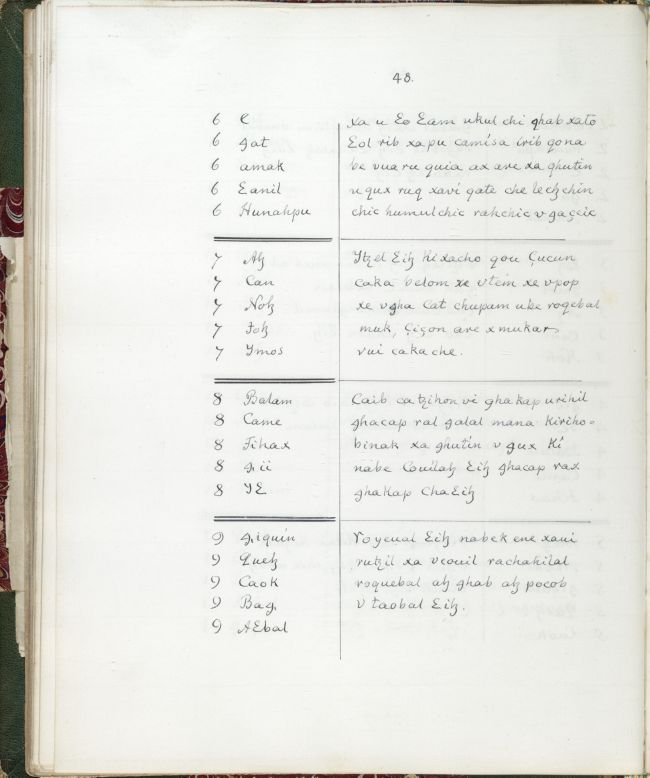 48.
6 E xa u Eo Eam ukul chi ghab xato
6 gat Eol rib xa pu camisa irib qona
6 amak be vua ru quia ax are xa ghutin
6 Eanil u qux ruq xavi gate che lech chin
6 Hunahpu chic humul chic rahchic v gaçcix
7 Ah Itzel Eih Kixacho qou Çucun
7 Can caka belom xe v tem xe v pop
7 Noh xe v gha Cat chupam ube roqebal
7 Toh muk, Çiçon are x mukar
7 Ymos vui cakache.
8 Balam Caib ca tzihon vi ghakap urihil
8 Came ghacap ral galal mana Kiriho=
8 Tihax binak xa ghutin v gux Ki
8 gii nabe Couilah Eih ghacap rax
8 YE ghakap Cha Eih
9 giquin Voyeual Eih nabek ene xavi
9 Queh rutzil xa vcouil rachakilal
9 Caok roquebal ah ghab ah pocob
9 Bag v taobal Eih.
9 AEbal